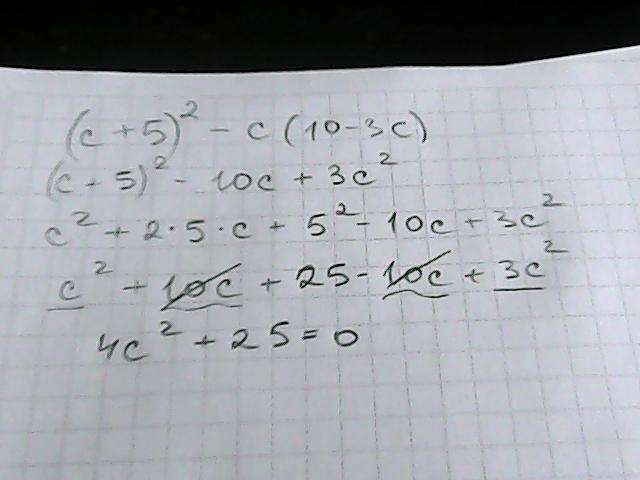 (c + 5)² - c (10 - 3c)
(c + 5)² - 10c + 3c²
c² + 2·5·c + 5² - 10c + 3c²
c² + 10c + 25 - 10c + 3c²
4c² + 25 = 0